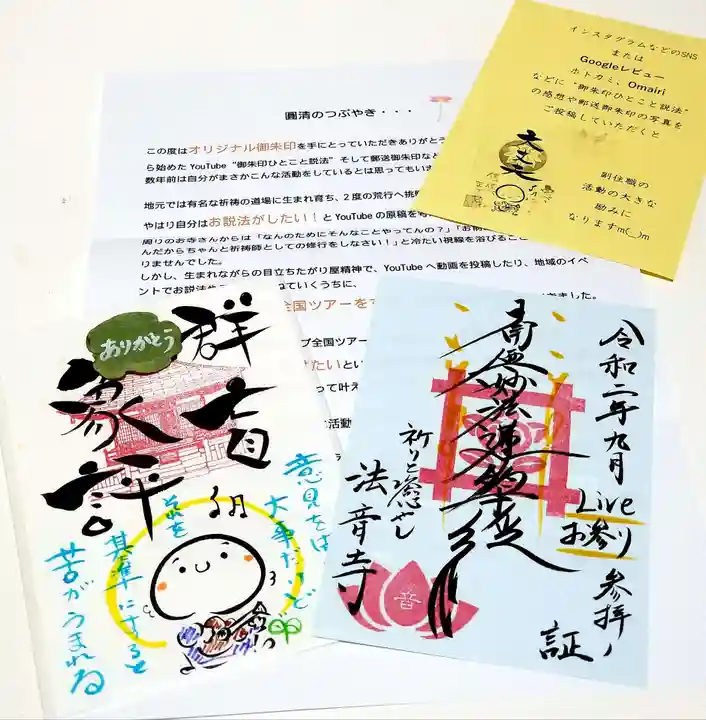 圓清のつぶやき・・・
この度はオリジナル御朱印を手にとっていただきありがとう
ら始めた YouTube “御朱印ひとこと説法” そして郵送御朱印な
数年前は自分がまさかこんな活動をしているとは思ってもい
地元では有名な祈祷の道場に生まれ育ち、2度の荒行へ挑
やはり自分はお説法がしたい！とYouTubeの原稿を
周りのお寺さんからは「なんのためにそんなことやってんの？」「お
んだからちゃんと祈祷師としての修行をしなさい！」と冷たい視線を浴びるこ
りませんでした。
しかし、生まれながらの目立ちたがり屋精神で、YouTubeへ動画を投稿したり、地域のイベ
ントでお説法や
ねていくうちに、
全国ツアーを
ました。
プ全国ツアー
けたいとい
って叶え
活動
インスタグラムなどのSNS
または
Googleレビュー
ホトカミ、Omairi
などに “御朱印ひとこと説法”
の感想や郵送御朱印の写真を
ご投稿していただくと
大丈夫
副住職の
活動の大きな
励みに
なりますm(_)m
ありがとう
群盲
象評
意見をは
大事だけど
それを
基準にすると
苦がうまれる
令和二年九月
Live
お参り
参拝ノ
証
南無妙法蓮華経
祈りと癒やし
法音寺
音